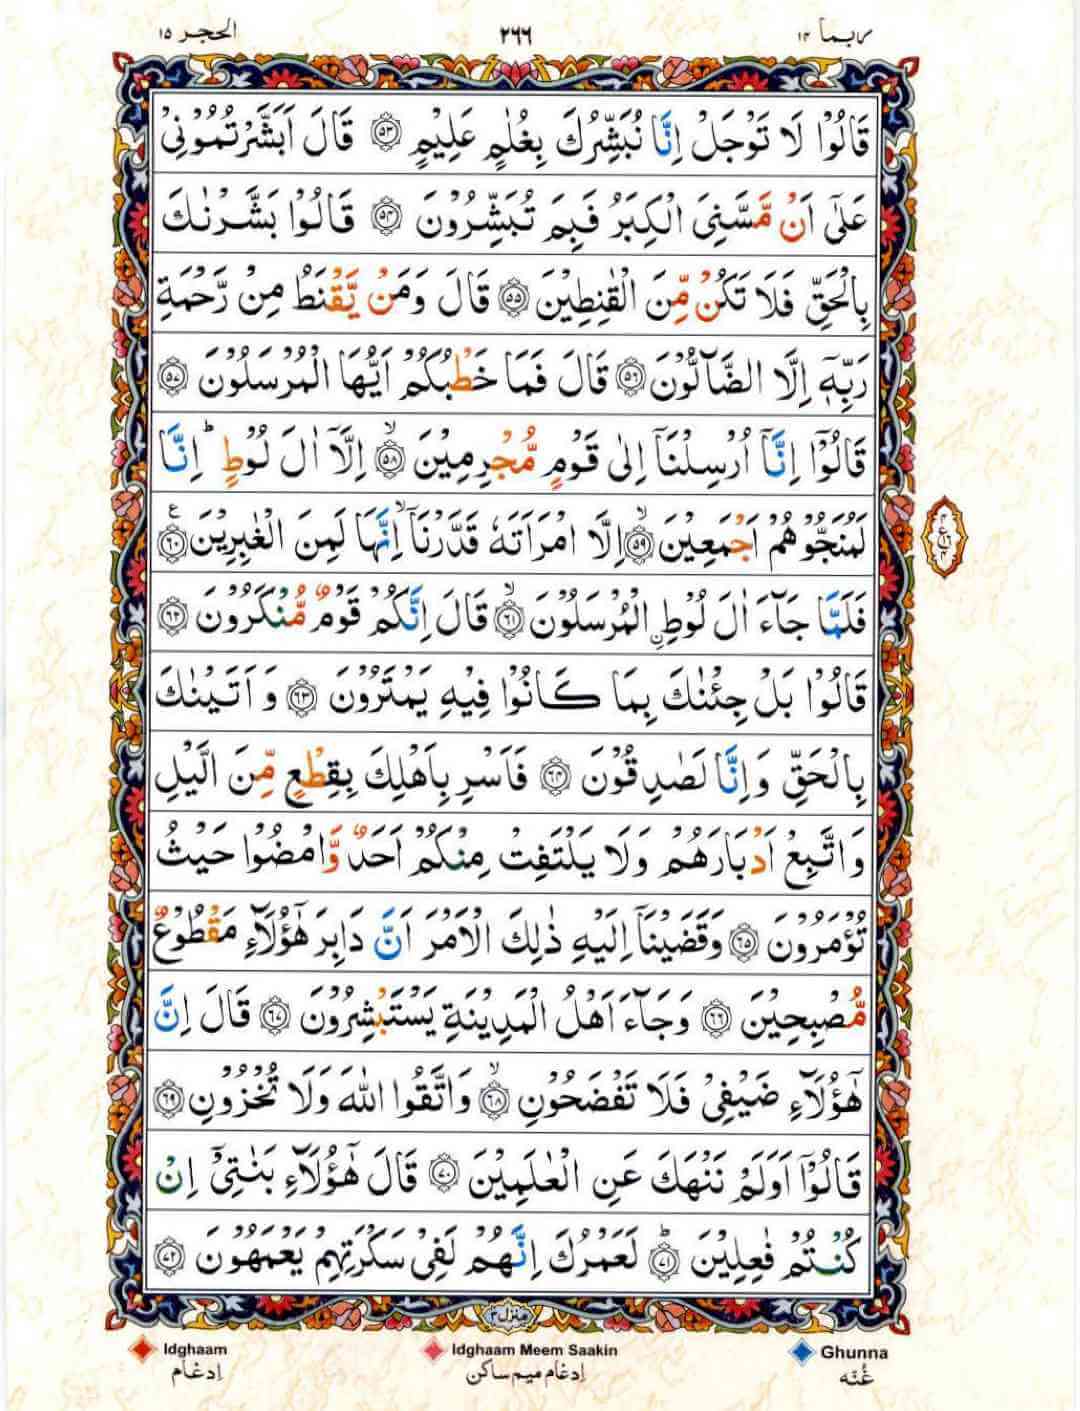 ربما ١٤
٢٦٦
الحجر ١٥
قَالُوْا لَا تَوْجَلْ اِنَّا نُبَشِّرُكَ بِغُلٰمٍ عَلِيْمٍ ﴿٥٣﴾ قَالَ اَبَشَّرْتُمُوْنِيْ
عَلٰۤى اَنْ مَّسَّنِيَ الْكِبَرُ فَبِمَ تُبَشِّرُوْنَ ﴿٥٤﴾ قَالُوْا بَشَّرْنٰكَ
بِالْحَقِّ فَلَا تَكُنْ مِّنَ الْقٰنِطِيْنَ ﴿٥٥﴾ قَالَ وَمَنْ يَّقْنَطُ مِنْ رَّحْمَةِ
رَبِّهٖۤ اِلَّا الضَّآلُّوْنَ ﴿٥٦﴾ قَالَ فَمَا خَطْبُكُمْ اَيُّهَا الْمُرْسَلُوْنَ ﴿٥٧﴾
قَالُوْۤا اِنَّاۤ اُرْسِلْنَاۤ اِلٰى قَوْمٍ مُّجْرِمِيْنَ ﴿٥٨﴾ۙ اِلَّاۤ اٰلَ لُوْطٍ ؕ اِنَّا
لَمُنَجُّوْهُمْ اَجْمَعِيْنَ ﴿٥٩﴾ۙ اِلَّا امْرَاَتَهٗ قَدَّرْنَاۤ ۙ اِنَّهَا لَمِنَ الْغٰبِرِيْنَ ﴿٦٠﴾ ع
فَلَمَّا جَآءَ اٰلَ لُوْطِ ِ۟الْمُرْسَلُوْنَ ﴿٦١﴾ۙ قَالَ اِنَّكُمْ قَوْمٌ مُّنْكَرُوْنَ ﴿٦٢﴾
قَالُوْا بَلْ جِئْنٰكَ بِمَا كَانُوْا فِيْهِ يَمْتَرُوْنَ ﴿٦٣﴾ وَاَتَيْنٰكَ
بِالْحَقِّ وَاِنَّا لَصٰدِقُوْنَ ﴿٦٤﴾ فَاَسْرِ بِاَهْلِكَ بِقِطْعٍ مِّنَ الَّيْلِ
وَاتَّبِعْ اَدْبَارَهُمْ وَلَا يَلْتَفِتْ مِنْكُمْ اَحَدٌ وَّامْضُوْا حَيْثُ
تُؤْمَرُوْنَ ﴿٦٥﴾ وَقَضَيْنَاۤ اِلَيْهِ ذٰلِكَ الْاَمْرَ اَنَّ دَابِرَ هٰۤؤُلَآءِ مَقْطُوْعٌ
مُّصْبِحِيْنَ ﴿٦٦﴾ وَجَآءَ اَهْلُ الْمَدِيْنَةِ يَسْتَبْشِرُوْنَ ﴿٦٧﴾ قَالَ اِنَّ
هٰۤؤُلَآءِ ضَيْفِيْ فَلَا تَفْضَحُوْنِ ﴿٦٨﴾ۙ وَاتَّقُوا اللّٰهَ وَلَا تُخْزُوْنِ ﴿٦٩﴾
قَالُوْۤا اَوَلَمْ نَنْهَكَ عَنِ الْعٰلَمِيْنَ ﴿٧٠﴾ قَالَ هٰۤؤُلَآءِ بَنٰتِيْۤ اِنْ
كُنْتُمْ فٰعِلِيْنَ ﴿٧١﴾ؕ لَعَمْرُكَ اِنَّهُمْ لَفِيْ سَكْرَتِهِمْ يَعْمَهُوْنَ ﴿٧٢﴾
منزل ٣
Idghaam
Idghaam Meem Saakin
Ghunna
اِدغام
اِدغام میم ساکن
غُنّه